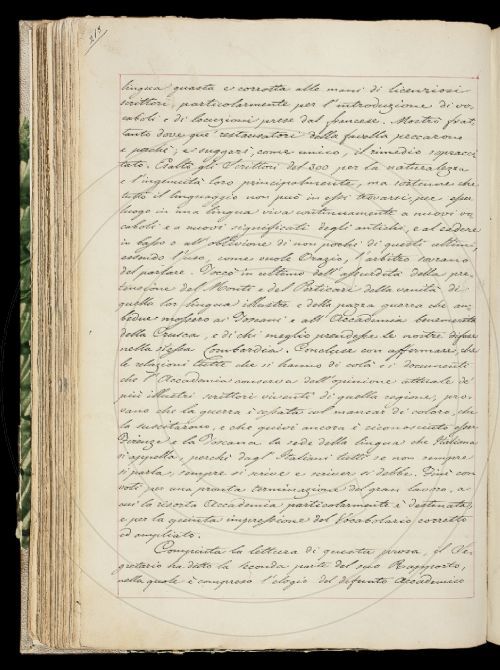 213
lingua guasta e corrotta alle mani di licenziosi
scrittori, particolarmente per l'introduzione di vo-
caboli e di locuzioni prese dal francese. Mostrò frat-
tanto dove que' restauratori della favella peccarono
e perchè; e suggerì, come unico, il rimedio soprac-
tato. Esaltò gli Scrittori del 300 per la naturalezza
e l'ingenuità loro principalmente, ma sostenne che
tutto il linguaggio non può in essi trovarsi per esser
luogo in una lingua viva continuamente a nuovi vo-
caboli e a nuovi significati degli antichi, e al cadere
in basso e all'obblivione di non pochi di questi ultimi,
essendo l'uso, come vuole Orazio, l'arbitro sovrano
del parlare. Toccò in ultimo dell'assurdità della pre-
tensione del Monti e del Perticari della vanità di
quella lor lingua illustre e della pazza guerra che am-
bedue mossero ai Toscani e all'Accademia benemerita
della Crusca, e di chi meglio prendesse le nostre difese
nella stessa Lombardia. Concluse con affermare, che
le relazioni tutte che si hanno di colà e i documenti
che l'Accademia conserva dell'opinione attuale de'
più illustri scrittori viventi di quella regione, pro-
vano che la guerra è cessata col mancar di coloro, che
la suscitarono, e che quivi ancora è riconosciuta esser
Firenze e la Toscana la sede della lingua che Italiana
si appella, perchè dagl'Italiani tutti se non sempre
si parla, sempre si scrive e scriver si debbe. Finì con
voti per una pronta terminazione del gran lavoro, a
cui la risorta Accademia particolarmente è destinata,
e per la quinta impressione del Vocabolario corretto
ed ampliato.
Compiuta la lettura di questa prosa, il Se-
gretario ha detto la seconda parte del suo Rapporto,
nella quale è compreso l'elogio del defunto Accademico